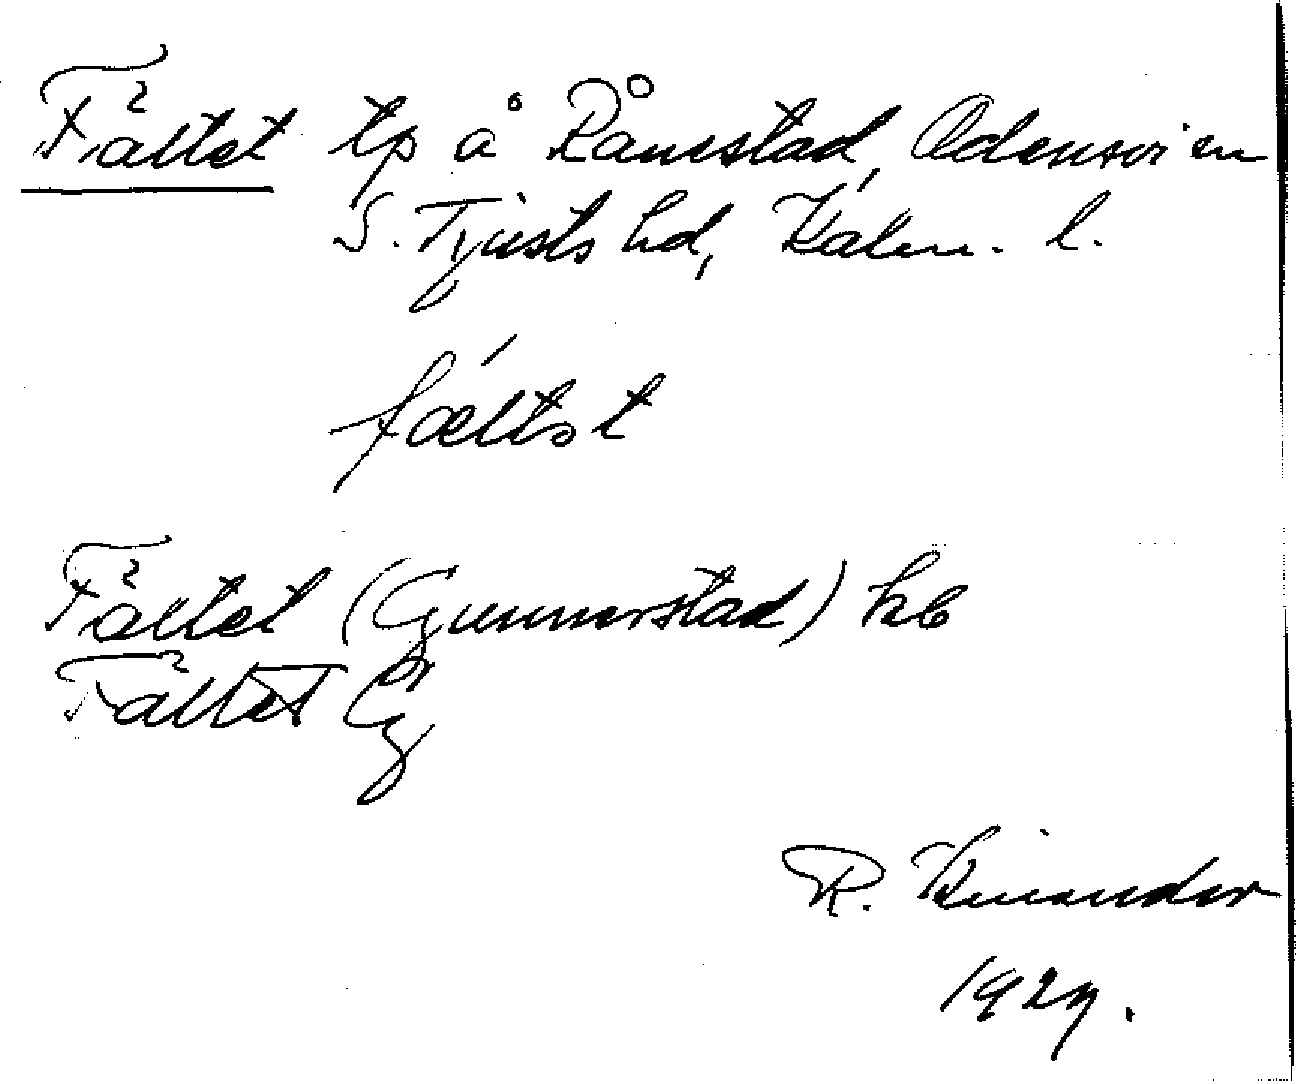 Fältet tp å Rånestad, Odensvi sn
S. Tjusts hd, Kalm. l.
fæltət
Fältet (Gunnerstad) kb
Fältet G
R. Kinander
1927.